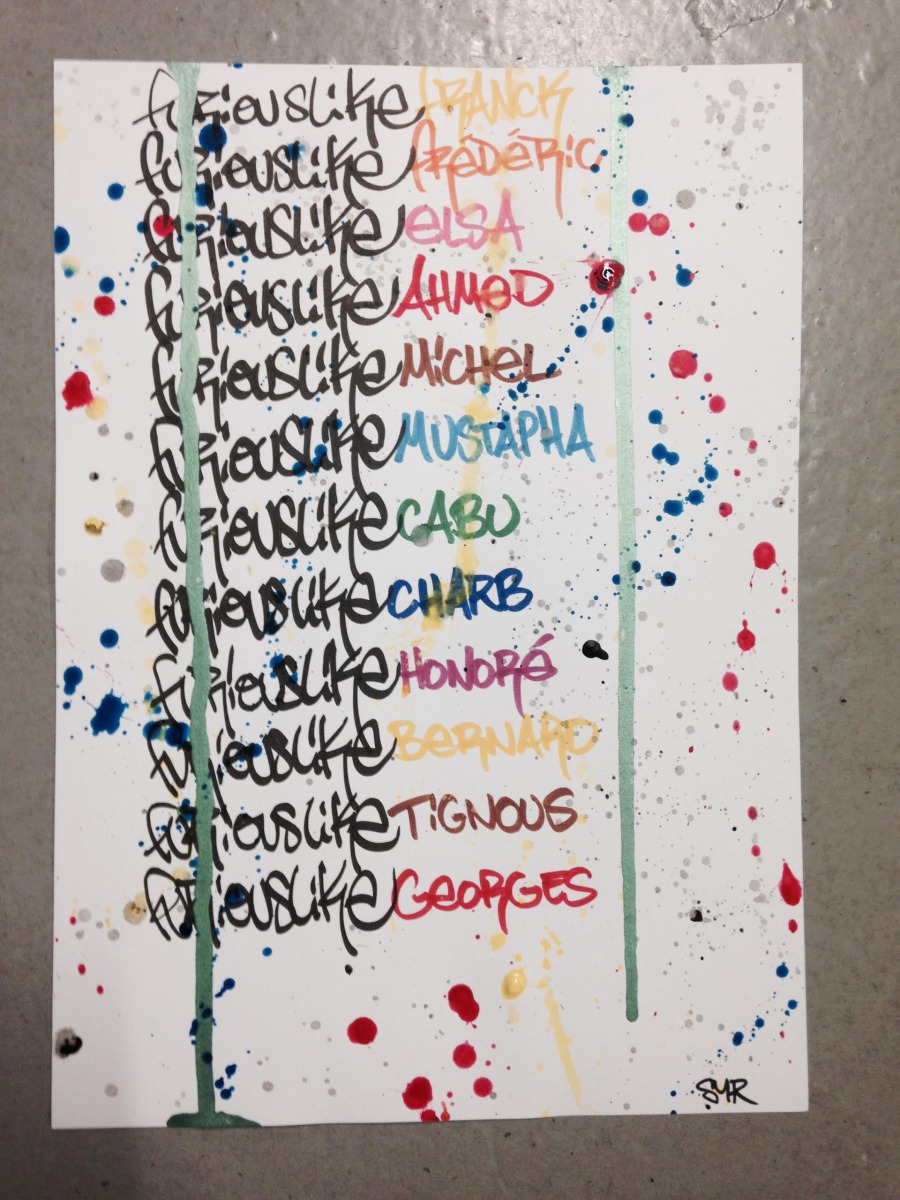 furiouslike FRANCK
furiouslike fRÉDÉRiC
furiouslike eLSA
furiouslike AHMeD
furiouslike MiCHeL
furiouslike MUSTAPHA
furiouslike CABU
furiouslike CHARB
furiouslike HONORé
furiouslike BeRNARD
furiouslike TiGNOUS
furiouslike GeORGES
SYR